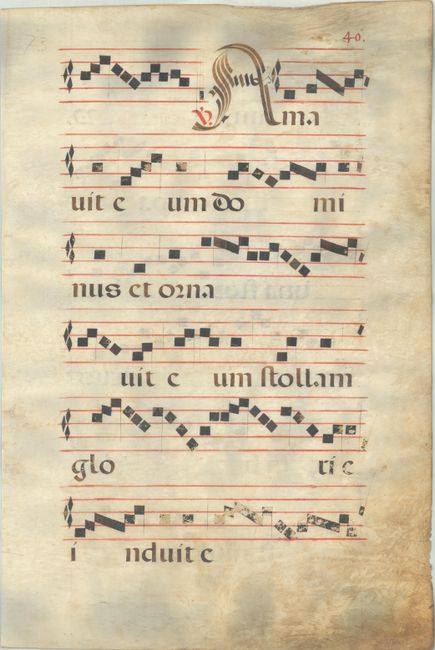 73 40.
V. Ama
uit e um do mi
nus et orna
uit e um stollam
glo rie
i nduit e